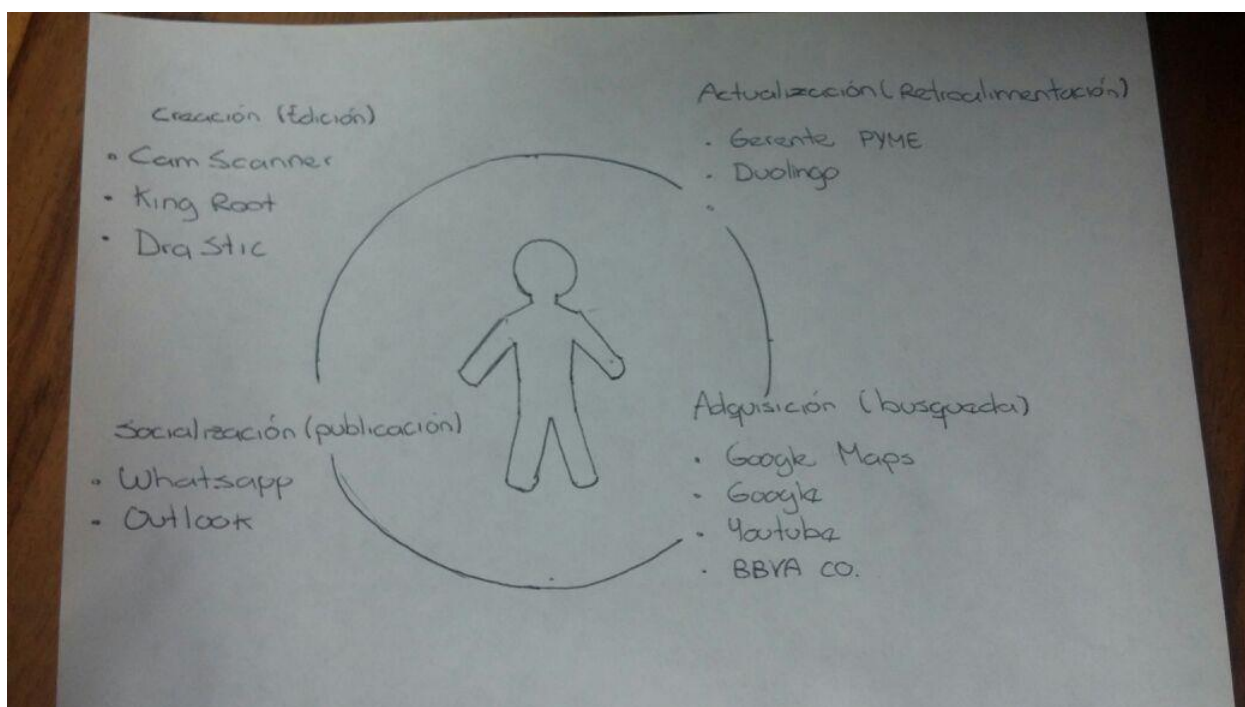 Creación (Edición)
• Cam Scanner
• King Root
• Dra Stic
Actualización (Retroalimentación)
• Gerente PYME
• Duolingo
•
Socialización (publicación)
• Whatsapp
• Outlook
Adquisición (busqueda)
• Google Maps
• Google
• Youtube
• BBVA CO.